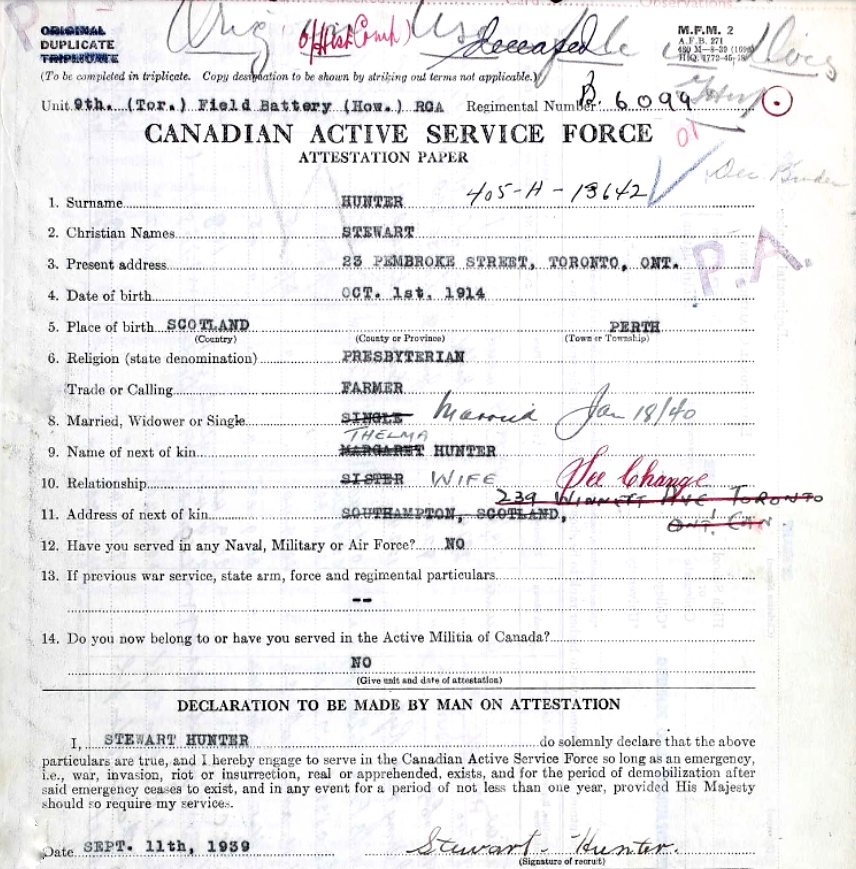 ORIGINAL
DUPLICATE
TRIPLICATE
Orig
Deceased
M.F.M. 2
A.F.B. 271
(To be completed in triplicate. Copy designation to be shown by striking out terms not applicable.)
Unit 9th. (Tor.) Field Battery (How.) RCA Regimental Number B. 6099
CANADIAN ACTIVE SERVICE FORCE
ATTESTATION PAPER
405-H-13642
P.A.
1. Surname HUNTER
2. Christian Names STEWART
3. Present address 23 PEMBROKE STREET, TORONTO, ONT.
4. Date of birth OCT. 1st, 1914
5. Place of birth SCOTLAND PERTH
(Country) (County or Province) (Town or Township)
6. Religion (state denomination) PRESBYTERIAN
Trade or Calling FARMER
8. Married, Widower or Single SINGLE Married Jan 18/40
THELMA
9. Name of next of kin MARGARET HUNTER
10. Relationship SISTER WIFE See Change
239 WINNETT AVE TORONTO
11. Address of next of kin SOUTHAMPTON, SCOTLAND,
ONT. CAN
12. Have you served in any Naval, Military or Air Force? NO
13. If previous war service, state arm, force and regimental particulars
--
14. Do you now belong to or have you served in the Active Militia of Canada?
NO
(Give unit and date of attestation)
DECLARATION TO BE MADE BY MAN ON ATTESTATION
I, STEWART HUNTER do solemnly declare that the above
particulars are true, and I hereby engage to serve in the Canadian Active Service Force so long as an emergency,
i.e., war, invasion, riot or insurrection, real or apprehended, exists, and for the period of demobilization after
said emergency ceases to exist, and in any event for a period of not less than one year, provided His Majesty
should so require my services.
Date SEPT. 11th, 1939 Stewart Hunter.
(Signature of recruit)